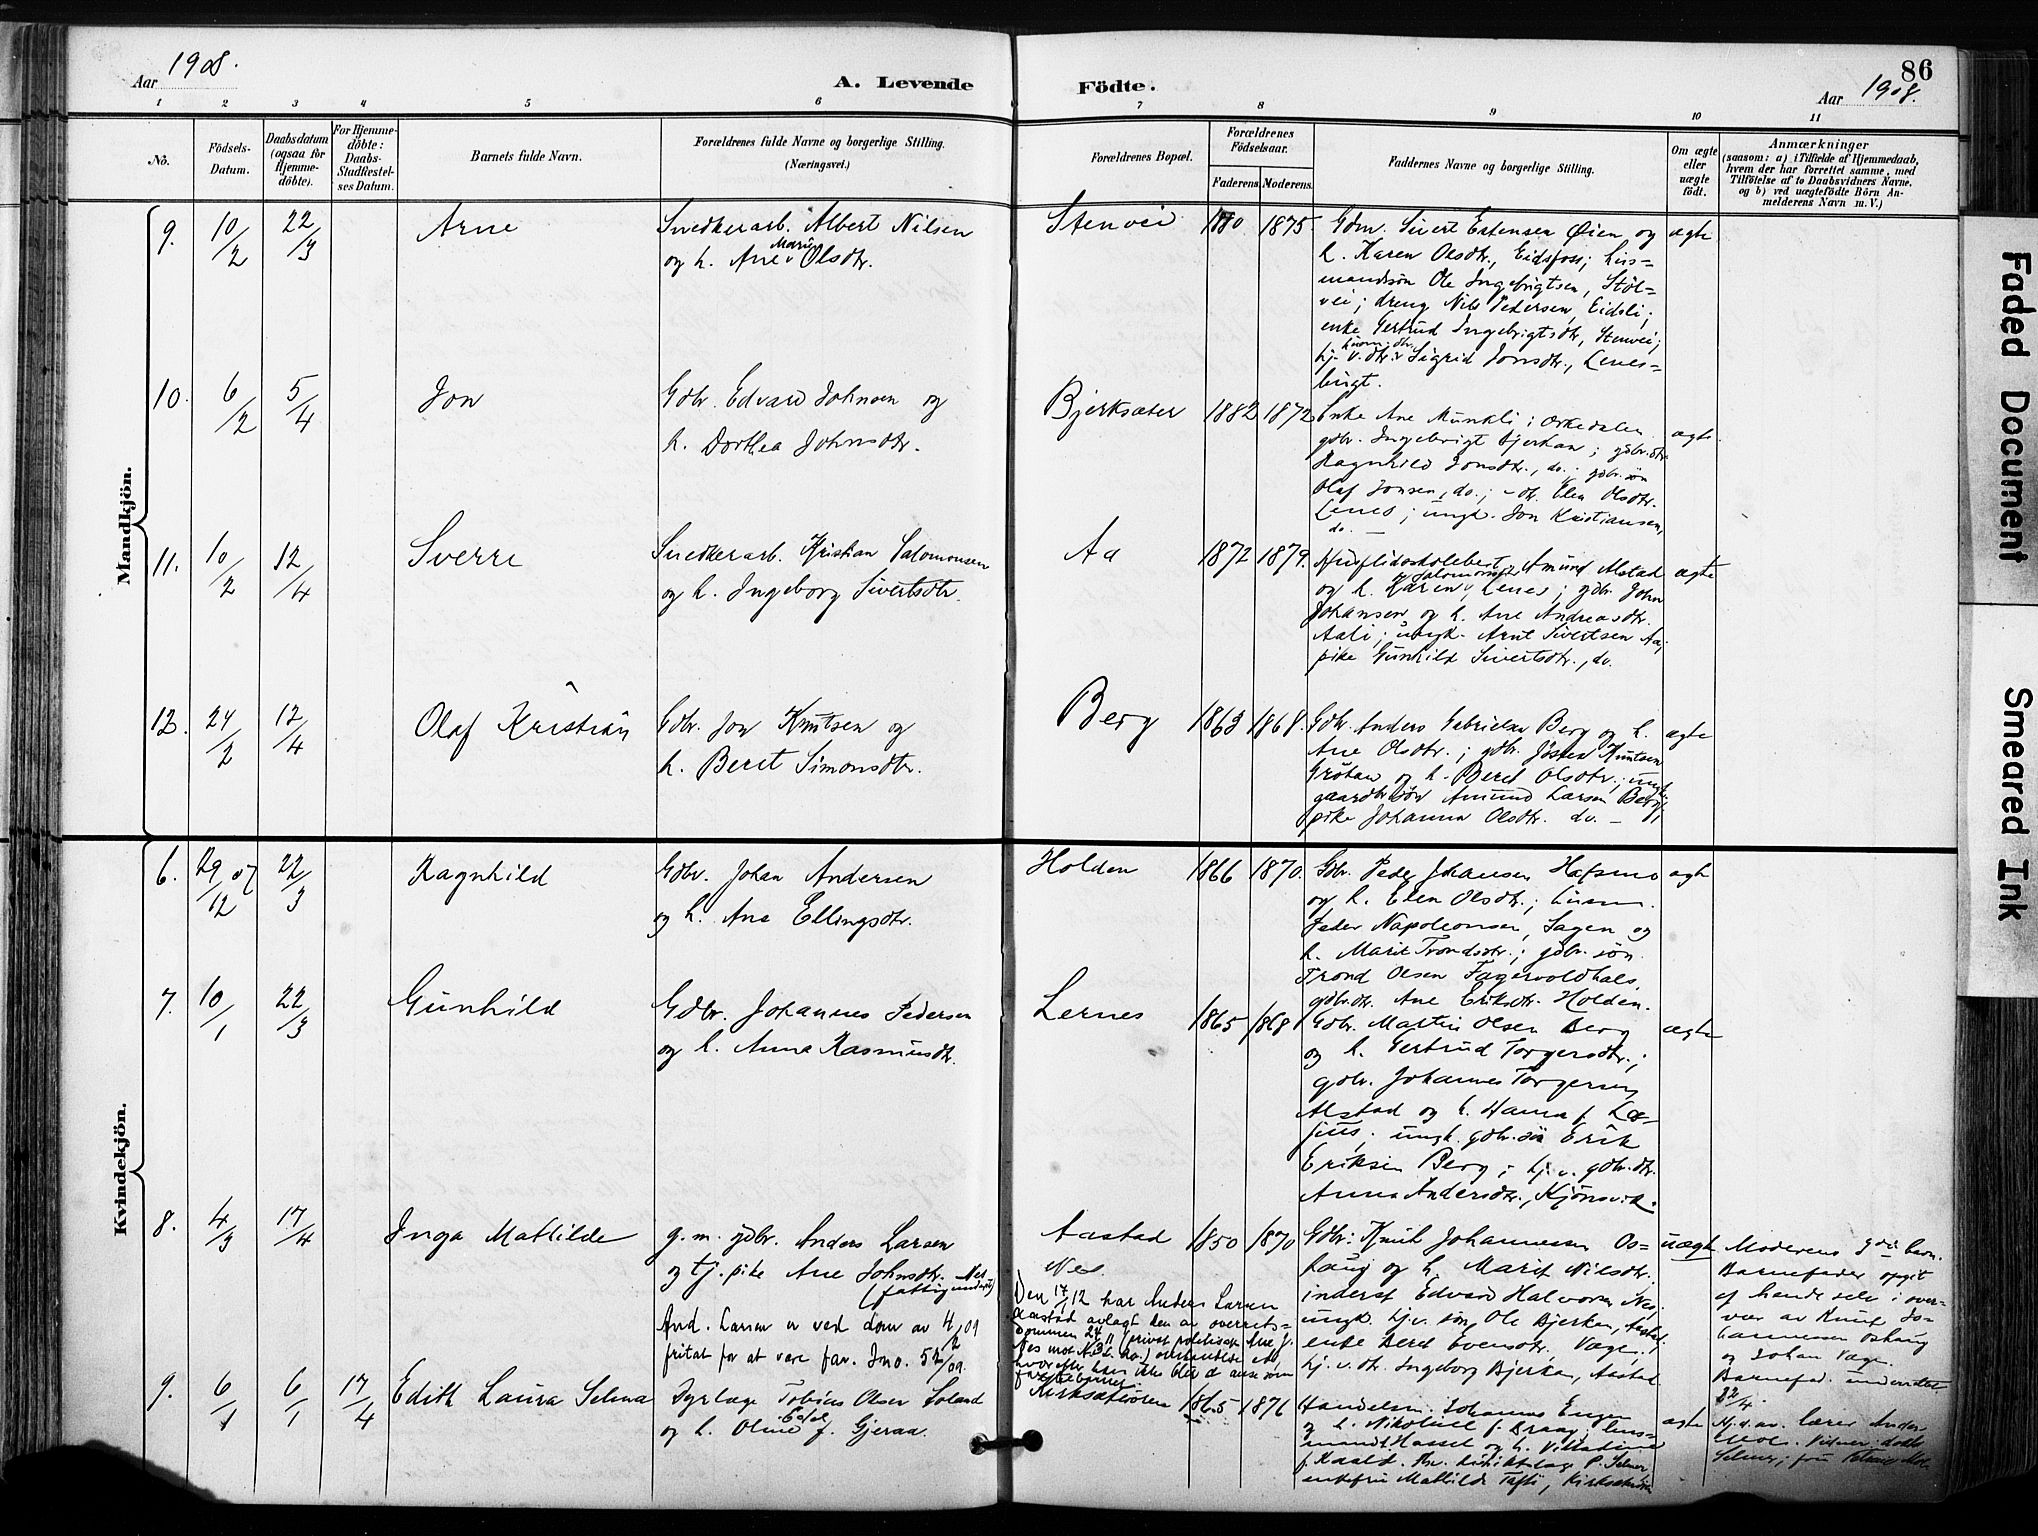 Aar 1908.
A. Levende
Födte.
86
Aar 1908.
1 2 3 4 5 6 7 8 9 10 11
No.
Födsels-
Datum.
Daabsdatum
(ogsaa for
Hjemme-
döbte).
For Hjemme-
döbte:
Daabs-
Stadfæstel-
ses Datum.
Barnets fulde Navn.
Forældrenes fulde Navne og borgerlige Stilling.
(Næringsvei.)
Forældrenes Bopæl.
Forældrenes
Födselsaar.
Faderens. Moderens.
Faddernes Navne og borgerlige Stilling.
Om ægte
eller
uægte
födt.
Anmærkninger
(saasom: a) i Tilfælde af Hjemmedaab,
hvem der har forrettet samme, med
Tilföielse af to Daabsvidners Navne,
og b) ved uægtefödte Börn An-
melderens Navn m. V.)
Mandkjön.
9. 10/2 22/3 Arne
Snedkerarb. Albert Nilsen
og h. Ane Marie Olsdtr.
Stenvei 1880 1875.
Gdm. Sivert Estensen Øien og
h. Karen Olsdtr., Eidsfoss; hus-
mandssøn Ole Ingebrigtsen, Støl-
vei; dreng Nils Pedersen, Eidsli;
enke Gertrud Ingebrigtsdtr., Stenvei;
hj. v. husm.dtr. Sigrid Jonsdtr., Lenes-
bugt.
ægte
10. 6/2 5/4 Jon
Gdbr. Edvard Johnsen og
h. Dorthea Johnsdtr.
Bjerksæter 1882 1872
Enke Ane Munkli i Orkedalen
gdbr. Ingebrigt Bjerkan; gdbr.dtr.
Ragnhild Jonsdtr., do.; gdbr.søn
Olaf Jonsen, do.; - dt. Elen Olsdtr.
Lenes; ungk. Jon Kristiansen,
do.
ægte
11. 10/2 12/4 Sverre
Snedkerarb. Kristian Salomonsen
og h. Ingeborg Sivertsdtr.
Aa 1872 1879.
Husflidsskolebest. Amund Alstad
og h. Karen Salomonsen, Lenes; gdbr. John
Johansen og h. Ane Andreasdtr.
Aali; ungk. Arnt Sivertsen Aa;
pike Gunhild Sivertsdtr., do.
ægte
12. 24/2 12/4 Olaf Kristian
Gdbr. Jon Knutsen og
h. Beret Simonsdtr.
Berg 1863 1868.
Gdbr. Anders Gabrielsen Berg og h.
Ane Olsdtr.; gdbr. Jøsten Knutsen
Grøtan og h. Beret Olsdtr.; ungk.
gaardbr.søn Amund Larsen Berg;
pike Johanna Olsdtr. do.
ægte
Kvindekjön.
6. 29/12 07 22/3 Ragnhild
Gdbr. Johan Andersen
og h. Ane Ellingsdtr.
Holden 1866 1870.
Gdbr. Peder Johansen Hafsmo
og h. Elen Olsdtr.; husm.
Peder Napoleonsen, Sagen og
h. Marit Trondsdtr.; gdbr. søn
Trond Olsen Fagervoldhals,
gdbr.dtr. Ane Eriksdtr. Holden.
ægte
7. 10/1 22/3 Gunhild
Gdbr. Johannes Pedersen
og h. Anna Rasmusdtr.
Lernes 1865 1868
Gdbr. Martin Olsen Berg
og h. Gertrud Torgersdtr.;
gdbr. Johannes Torgersen
Alstad og h. Hanna f. Læ-
; ungk. gdbr. søn Erik
Eriksen Berg; hj. v. gdbr. dtr.
Anna Andersdtr., Kjønsvik.
ægte
8. 4/3 17/4 Inga Mathilde
g.m. gdbr. Anders Larsen
og tj. pike Ane Johnsdtr. Nes
(fattigunderst.)
And. Larsen er ved dom av 4/2 09
fritat for at være far. Jno. 52/09.
Aastad
Nes.
1850 1870
Den 17/1 12 har Anders Larsen
Aastad avlagt den av overrets-
dommen 24/11
Gdbr. Knut Johannessen Os-
haug og h. Marit Nilsdtr.
inderst Edvard Halvorsen Nes,
ungk. hj.v. søn, Ole Bjerkan, Aastad.
enke Beret Evensdtr. Vage;
hj. v. dtr. Ingeborg Bjerkan, Aastad
uægte
Moderens 9de barn.
Barnefader opgit
af hende selv i over-
vær av Knut Jo-
hannessen Oshaug
og Johan Vage.
Barnefad. underrettet
22/4.
9. 6/1 6/1 17/4 Edith Laura Selma
Dyrlæge Tobias Olsen Soland
og h. Oline Edel f. Gjeraa.
Kirksæterøren 1865 1876
Handelsm. Johannes Engen
og h. Nikoline f. Braa; hus-
mand Hassel og h.
f. Kaald. distriktslæge P. Selmer,
enkefru Mathilde , Kirksæterøren
ægte
Hj.d. av lærer
Faded Document
Smeared Ink